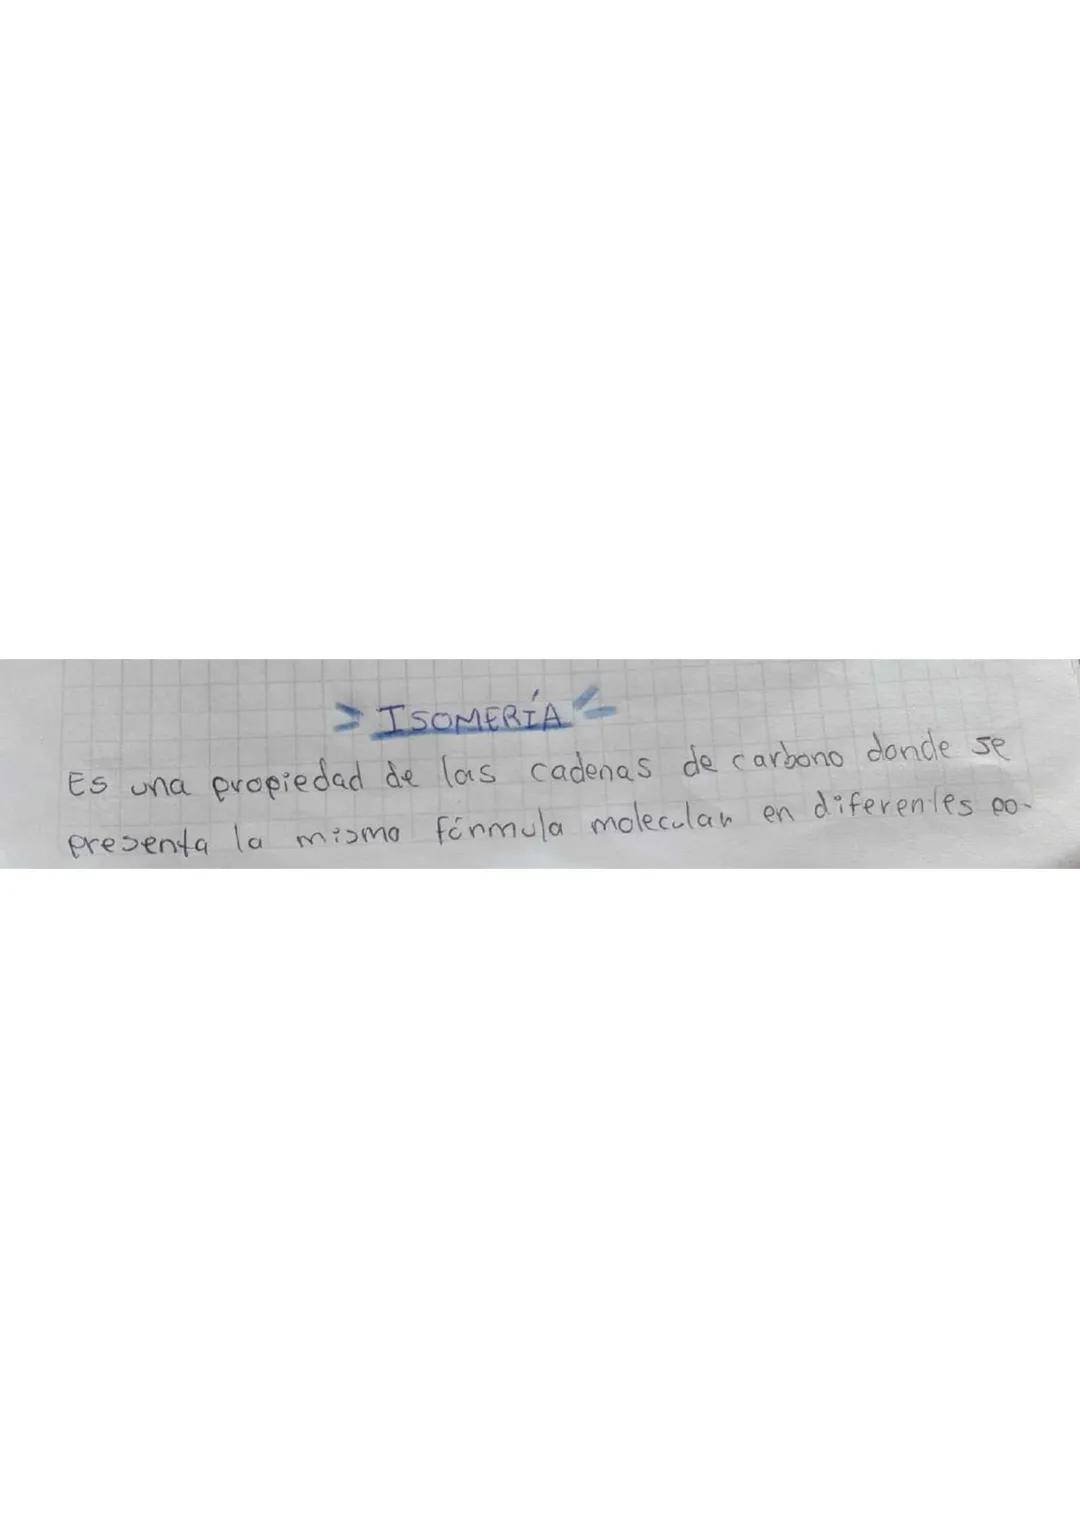 > ISOMERÍA <
Es una propiedad de las cadenas de carbono donde se
presenta la misma fórmula molecular en diferentes po-